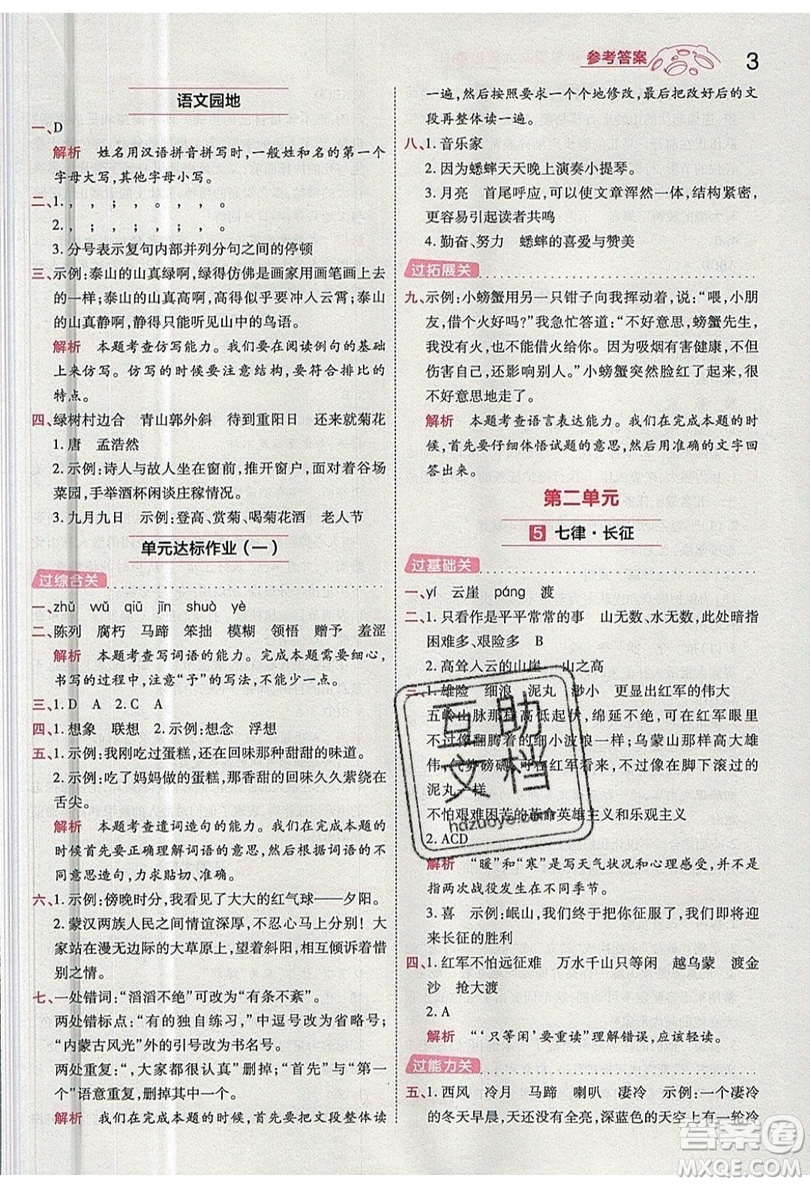 参考答案
3
语文园地
一、D
解析 姓名用汉语拼音拼写时,一般姓和名的第一个
字母大写,其他字母小写。
二、1. , ; , ; , 。
2. , ; , ; , 。
3. 分号表示复句内部并列分句之间的停顿
三、示例:泰山的山真绿啊,绿得仿佛是画家用画笔画上去
的一样;泰山的山真高啊,高得能触摸到白云;泰山
的山真静啊,静得只能听见山中的鸟语。
解析 本题考查仿写能力。我们要在阅读例句的基础
上来仿写。仿写的时候要注意结构,要符合景物的特
点。
四、绿树村边合 青山郭外斜 待到重阳日 还来就菊花
1. 唐 孟浩然
2. 示例:诗人与故人坐在窗前,推开窗户,对着谷场
菜园,手举酒杯闲谈庄稼情况。
3. 九月九日 示例:登高、赏菊、喝菊花酒 老人节
单元达标作业(一)
过综合关
一、zhǔ wǔ qiū jīn shuò yè
二、陈列 腐朽 马蹄 笨拙 模糊 领悟 赠予 羞涩
解析 本题考查写词语的能力。完成本题需要细心,
书写的过程中,注意“予”的写法,不能少一点。
三、1. D A 2. C A
四、1. 想象 联想 2. 示例:想念 浮想
五、1. 示例:我刚吃过蛋糕,还在回味那种甜甜的味道。
2. 示例:吃了妈妈做的蛋糕,那种甜甜的味道久久萦绕在
舌尖。
解析 本题考查遣词造句的能力。我们在完成本题的
时候首先要正确理解词语的意思,然后根据词语的意
思造句,句子要通顺。
六、1. 示例:傍晚时分,我看见了大大的红气球——夕阳。
2. 蒙汉两族人民之间情谊深厚,不忍心马上分别。大
家站在漫无边际的大草原上,望着斜阳,相互倾诉着惜
别之情。
七、一处错词:“滔滔不绝”可改为“有条不紊”。
两处错标点:“有的独自练习,”中逗号改为分号;
“内蒙古风光”外的引号改为书名号。
两处重复:“,大家都很认真”删掉;“首先”与“第一
个”语意重复,删掉其中一个。
解析 我们在完成本题的时候,首先要把文段整体读
一遍,然后按照要求一个个地修改,最后把改好后的文
段再整体读一遍。
八、1. 音乐家
2. 因为蟋蟀天天晚上演奏小提琴。
3. 月亮 首尾呼应,可以使文章浑然一体,结构紧密,
更容易引起读者共鸣
4. 勤奋、努力 蟋蟀的喜爱与赞美
过拓展关
九、示例:小螃蟹用另一只钳子向我挥动着,说:“喂,小朋
友,借个火好吗?”我急忙答道:“不好意思,螃蟹先生,
我这里没有火,也不能借火。因为吸烟有害健康,不
但危害自己,还影响他人。”小螃蟹突然脸红了起来,
不好意思地走了。
解析 本题考查语言表达能力。我们在完成本题的时
候,首先要仔细体悟试题的意思,然后用准确的文字回
答出来。
第二单元
5 七律·长征
过基础关
一、yí 云崖 páng 渡
二、1. 只看作是平平常常的事 山无数,水无数,此处暗指
困难多、艰险多 B
2. 高耸入云的山崖 山之高
三、1. 雄险 细浪 泥丸 渺小 更显出红军的伟大
五岭山脉那样高低起伏,绵延不绝,可在红军眼里,
不过像翻腾着的细小波浪一样;乌蒙山那样高大雄
伟,气势磅礴,可在红军看来,不过像在脚下滚过的
泥丸一样。
不怕艰难困苦的革命英雄主义和乐观主义
2. ACD
解析 “暖”和“寒”是写天气状况和心理感受,而不是
指两次战役发生在夏、冬两个季节。
3. 喜 示例:岷山,我们终于把你征服了,我们终于迎
来长征的胜利
四、1. 红军不怕远征难 万水千山只等闲 越乌蒙 渡金
沙 抢大渡
2. A
解析 “‘只等闲’要重读”理解错误,应该轻读。
过能力关
五、1. 西风 冷月 马蹄 喇叭 凄冷 示例:一个凄冷
的冬天早晨,天还没有完全亮,深蓝色的天空上有一轮冷
互助文档
hdzuoye.com
答案圈
MXQE.COM